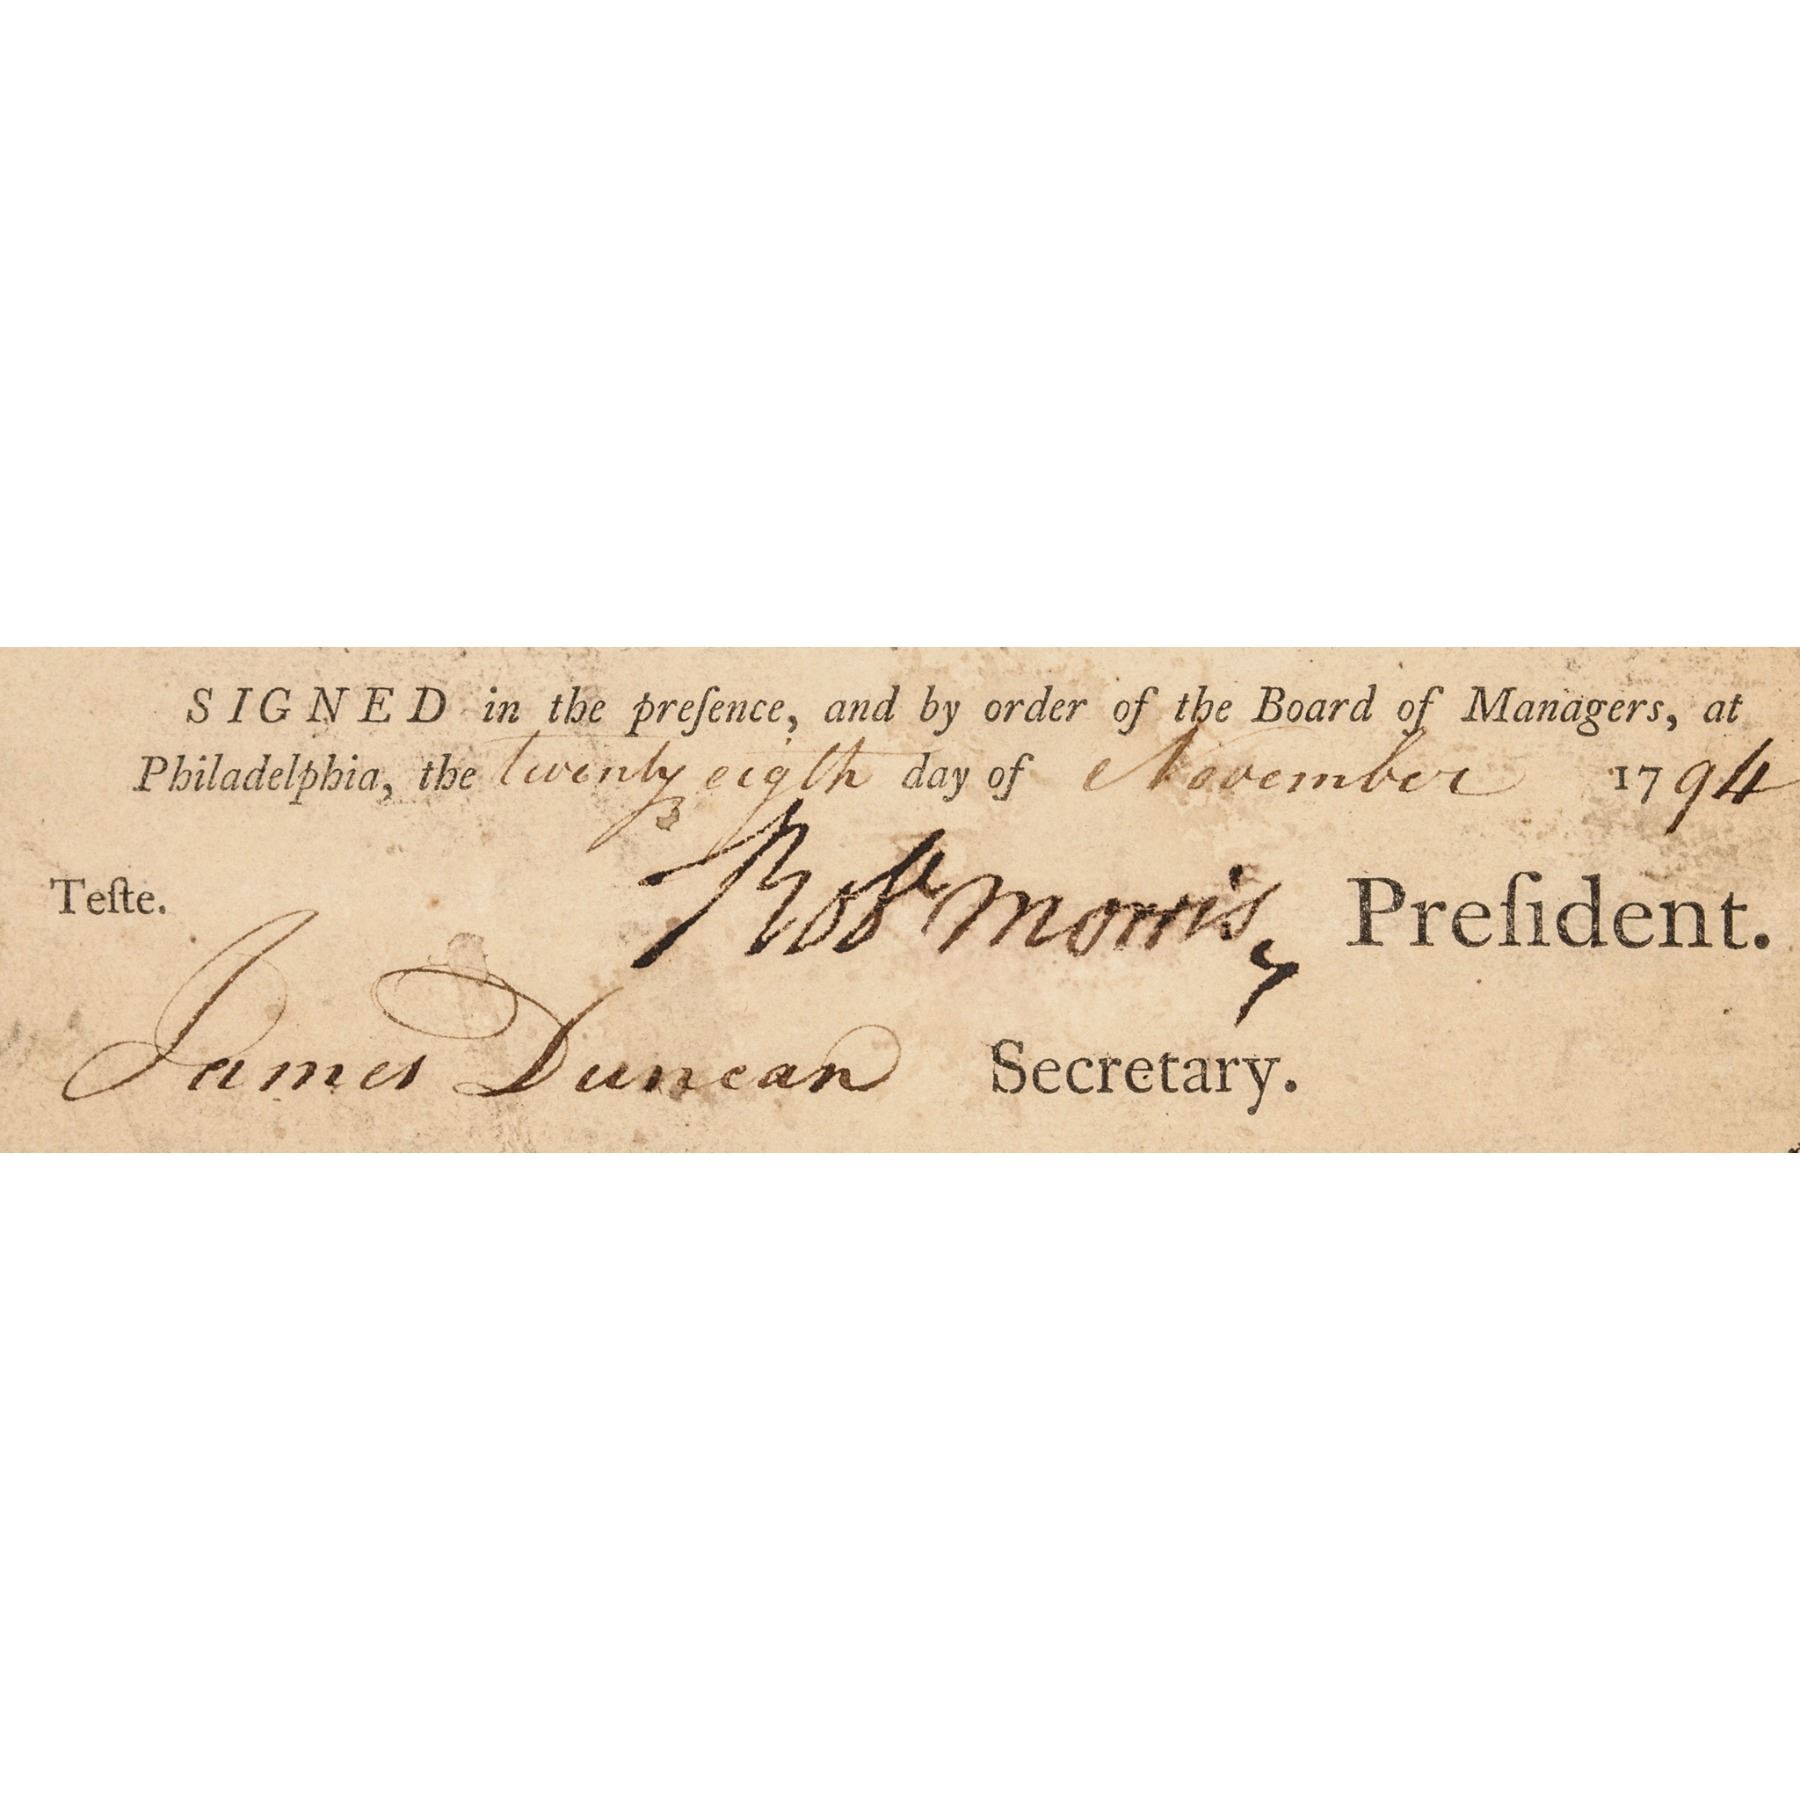 SIGNED in the preſence, and by order of the Board of Managers, at
Philadelphia, the twenty eigth day of November 1794
Robt Morris, Preſident.
Teſte.
James Duncan Secretary.